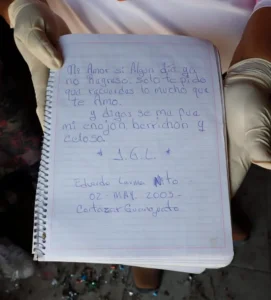 Mi Amor si Algun día ya
no regreso. Solo te pido
que recuerdes lo mucho que
te Amo.
y digas se me fue
mi enojon berrichon y
celoso.
J.G.L.
Eduardo Lerma Nito
02 - MAY. 2003.-
Cortazar Guanajuato